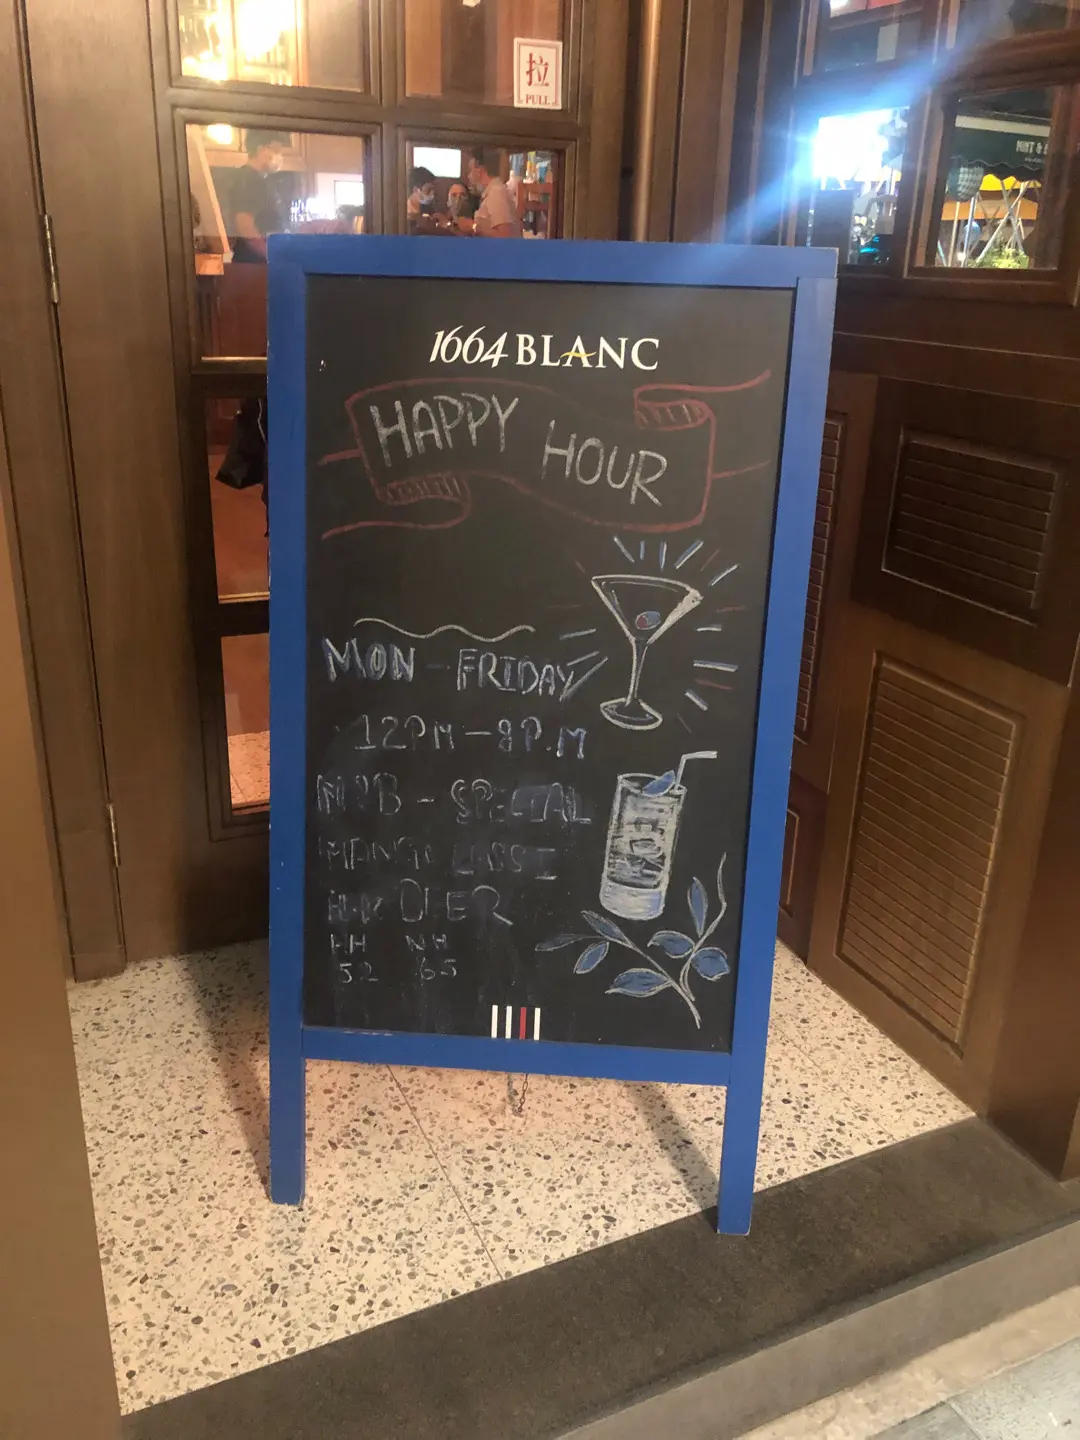 拉
PULL
1664 BLANC
HAPPY HOUR
MON - FRIDAY
12PM - 8P.M
- SPECIAL
MANGO LASSI
HH NH
52 65